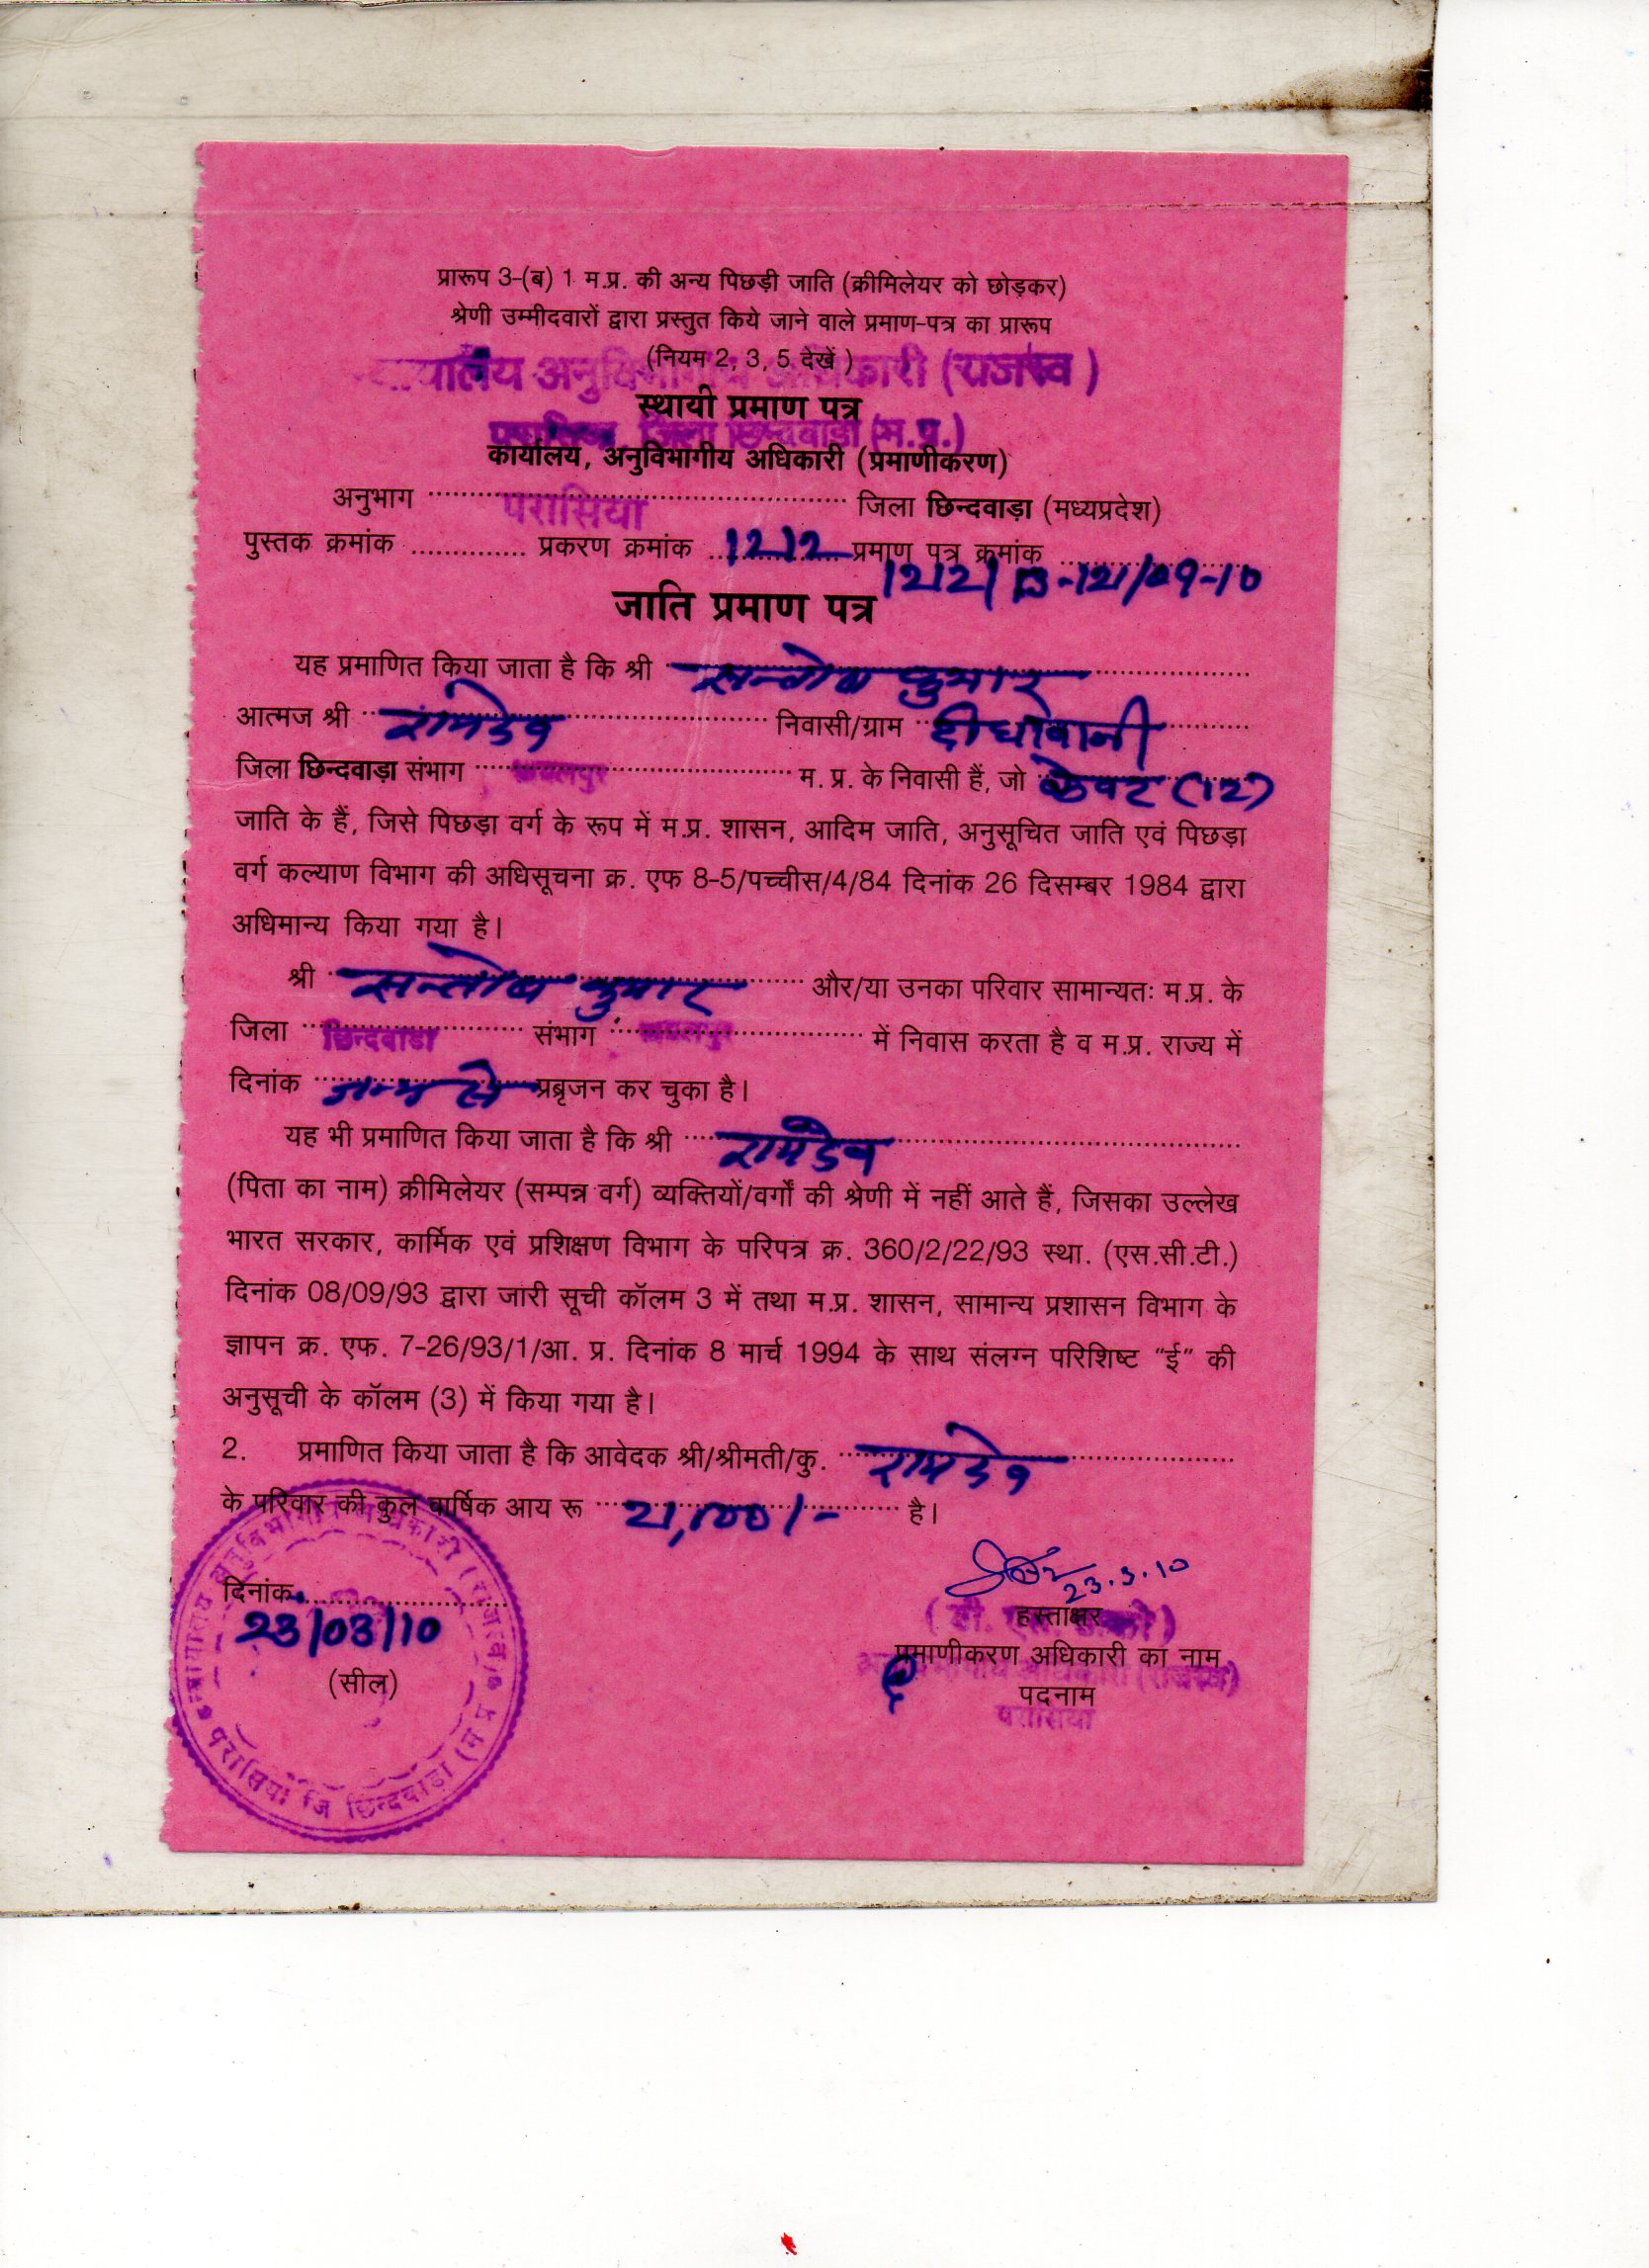 प्रारूप 3-(ब) 1 म.प्र. की अन्य पिछड़ी जाति (क्रीमिलेयर को छोड़कर)
श्रेणी उम्मीदवारों द्वारा प्रस्तुत किये जाने वाले प्रमाण-पत्र का प्रारूप
(नियम 2, 3, 5 देखें )
न्यायालय अनुविभागीय अधिकारी (राजस्व )
स्थायी प्रमाण पत्र
परासिया, जिला छिन्दवाड़ा (म.प्र.)
कार्यालय, अनुविभागीय अधिकारी (प्रमाणीकरण)
अनुभाग परासिया जिला छिन्दवाड़ा (मध्यप्रदेश)
पुस्तक क्रमांक ............. प्रकरण क्रमांक 1212 प्रमाण पत्र क्रमांक
1212/B-121/09-10
जाति प्रमाण पत्र
यह प्रमाणित किया जाता है कि श्री सन्तोष कुमार
आत्मज श्री रामदेव निवासी/ग्राम दीघावानी
जिला छिन्दवाड़ा संभाग जबलपुर म. प्र. के निवासी हैं, जो केवट (12)
जाति के हैं, जिसे पिछड़ा वर्ग के रूप में म.प्र. शासन, आदिम जाति, अनुसूचित जाति एवं पिछड़ा
वर्ग कल्याण विभाग की अधिसूचना क्र. एफ 8-5/पच्चीस/4/84 दिनांक 26 दिसम्बर 1984 द्वारा
अधिमान्य किया गया है।
श्री सन्तोष कुमार और/या उनका परिवार सामान्यतः म.प्र. के
जिला छिन्दवाड़ा संभाग जबलपुर में निवास करता है व म.प्र. राज्य में
दिनांक जन्म से प्रबृजन कर चुका है।
यह भी प्रमाणित किया जाता है कि श्री रामदेव
(पिता का नाम) क्रीमिलेयर (सम्पन्न वर्ग) व्यक्तियों/वर्गों की श्रेणी में नहीं आते हैं, जिसका उल्लेख
भारत सरकार, कार्मिक एवं प्रशिक्षण विभाग के परिपत्र क्र. 360/2/22/93 स्था. (एस.सी.टी.)
दिनांक 08/09/93 द्वारा जारी सूची कॉलम 3 में तथा म.प्र. शासन, सामान्य प्रशासन विभाग के
ज्ञापन क्र. एफ. 7-26/93/1/आ. प्र. दिनांक 8 मार्च 1994 के साथ संलग्न परिशिष्ट “ई” की
अनुसूची के कॉलम (3) में किया गया है।
2. प्रमाणित किया जाता है कि आवेदक श्री/श्रीमती/कु. रामदेव
के परिवार की कुल वार्षिक आय रू 21,000/- है।
23.3.10
दिनांक
हस्ताक्षर
23/03/10
प्रमाणीकरण अधिकारी का नाम
अनुविभागीय अधिकारी (राजस्व)
(सील)
पदनाम
परासिया
न्यायालय अनुविभागीय अधिकारी (राजस्व)
परासिया जि छिन्दवाड़ा (म प्र